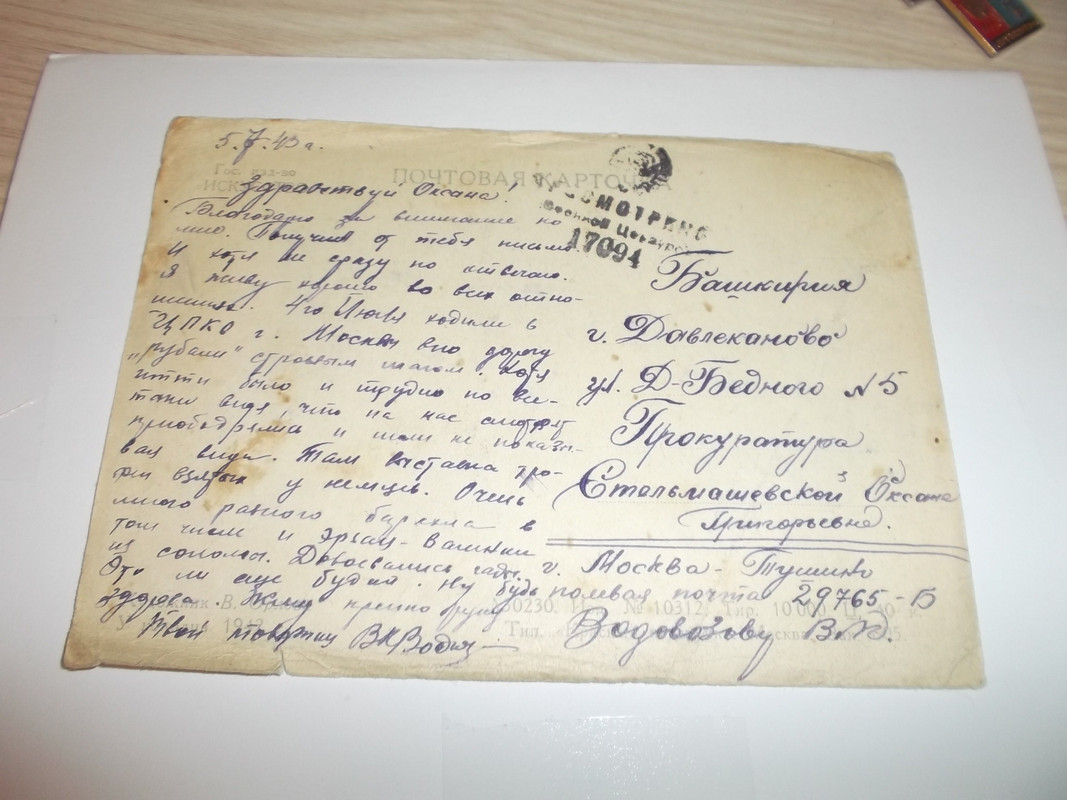 5.7.43 г.
Гос. изд-во
ИСК
ПОЧТОВАЯ КАРТОЧКА
Здравствуй Оксана!
Благодарю за внимание ко
мне. Получив от тебя письмо
И хотя не сразу но отвечаю.
Я живу хорошо во всех отно-
шениях. 4го Июля ходили в
ЦПКО г. Москвы всю дорогу
"рубали" строевым шагом. Хотя
итти было и трудно но все-
таки видя, что на нас смотрят
приободрялись и шли не показы-
вая вида. Там выставка тро-
фей взятых у немцев. Очень
много разного барахла в
том числе и эрзац-валенки
из соломы. Довоевались гады.
То ли еще будет. Ну будь
здорова. Жму крепко руку
Твой товарищ ВКВодов
ПРОСМОТРЕНО
Военной Цензурой
17094
Башкирия
г. Давлеканово
ул. Д-Бедного №5
Прокуратура
Стельмашевской Оксане
Григорьевне.
г. Москва-Тушино
полевая почта 29765-Б
Водовозову В.К.
Художник В.
30230. № 10312. Тир. 10 000
Тип.